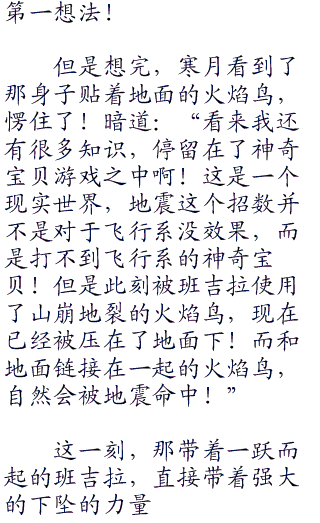 第一想法！
但是想完，寒月看到了
那身子贴着地面的火焰鸟，
愣住了！暗道：“看来我还
有很多知识，停留在了神奇
宝贝游戏之中啊！这是一个
现实世界，地震这个招数并
不是对于飞行系没效果，而
是打不到飞行系的神奇宝
贝！但是此刻被班吉拉使用
了山崩地裂的火焰鸟，现在
已经被压在了地面下！而和
地面链接在一起的火焰鸟，
自然会被地震命中！”
这一刻，那带着一跃而
起的班吉拉，直接带着强大
的下坠的力量